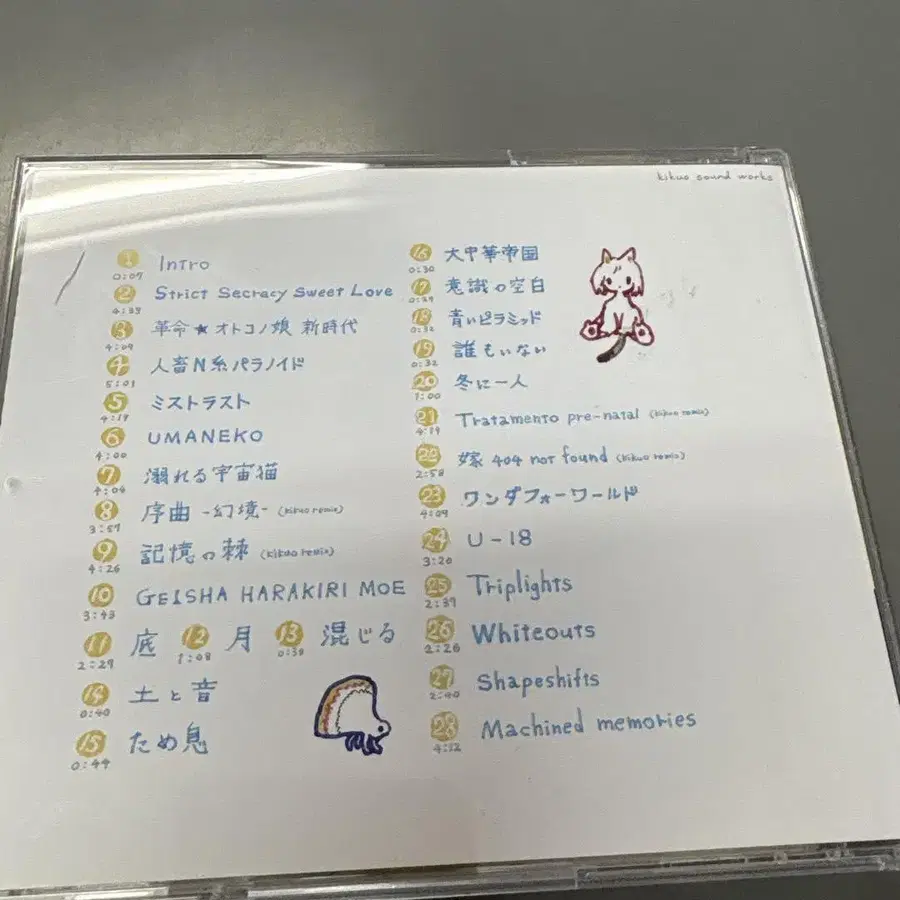 kikuo sound works
1 Intro
0:07
2 Strict Secracy Sweet Love
4:33
3 革命★オトコノ娘 新時代
4:09
4 人畜N糸パラノイド
5:01
5 ミストラスト
4:19
6 UMANEKO
4:00
7 溺れる宇宙猫
4:04
8 序曲 -幻境- (kikuo remix)
3:57
9 記憶の棘 (kikuo remix)
4:26
10 GEISHA HARAKIRI MOE
3:43
11 底 12 月 13 混じる
2:29 1:08 0:39
14 土と音
0:40
15 ため息
0:44
16 大中華帝国
0:30
17 意識の空白
0:29
18 青いピラミッド
0:32
19 誰もいない
0:32
20 冬に一人
1:00
21 Tratamento pre-natal (kikuo remix)
4:19
22 嫁 404 not found (kikuo remix)
2:58
23 ワンダフォーワールド
4:09
24 U-18
3:20
25 Triplights
2:39
26 Whiteouts
2:26
27 Shapeshifts
2:40
28 Machined memories
4:12